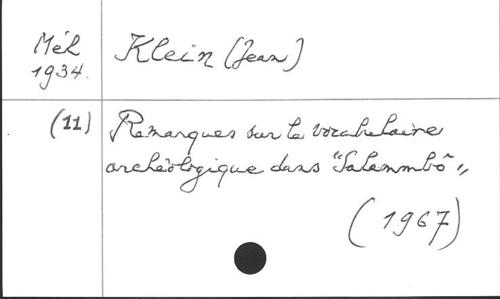 Mél
1934.
Klein (Jean)
(11)
Remarques sur le vocabulaire
archéologique dans "Salammbô"
(1967)